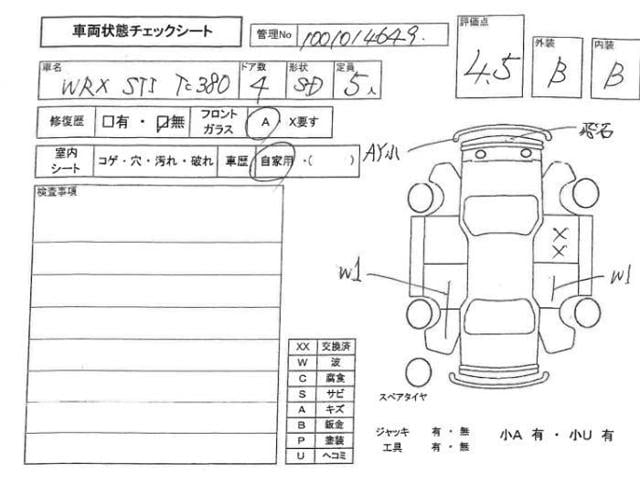 車両状態チェックシート
管理No 1001014649.
評価点 4.5
外装 B
内装 B
車名 WRX STI Tc380
ドア数 4
形状 SD
定員 5人
修復歴 □有・☑無
フロントガラス A X要す
室内シート コゲ・穴・汚れ・破れ
車歴 自家用・( )
検査事項
AY小
飛石
XX
W1
W1
XX 交換済
W 波
C 腐食
S サビ
A キズ
B 鈑金
P 塗装
U ヘコミ
スペアタイヤ
ジャッキ 有・無
工具 有・無
小A 有・小U 有